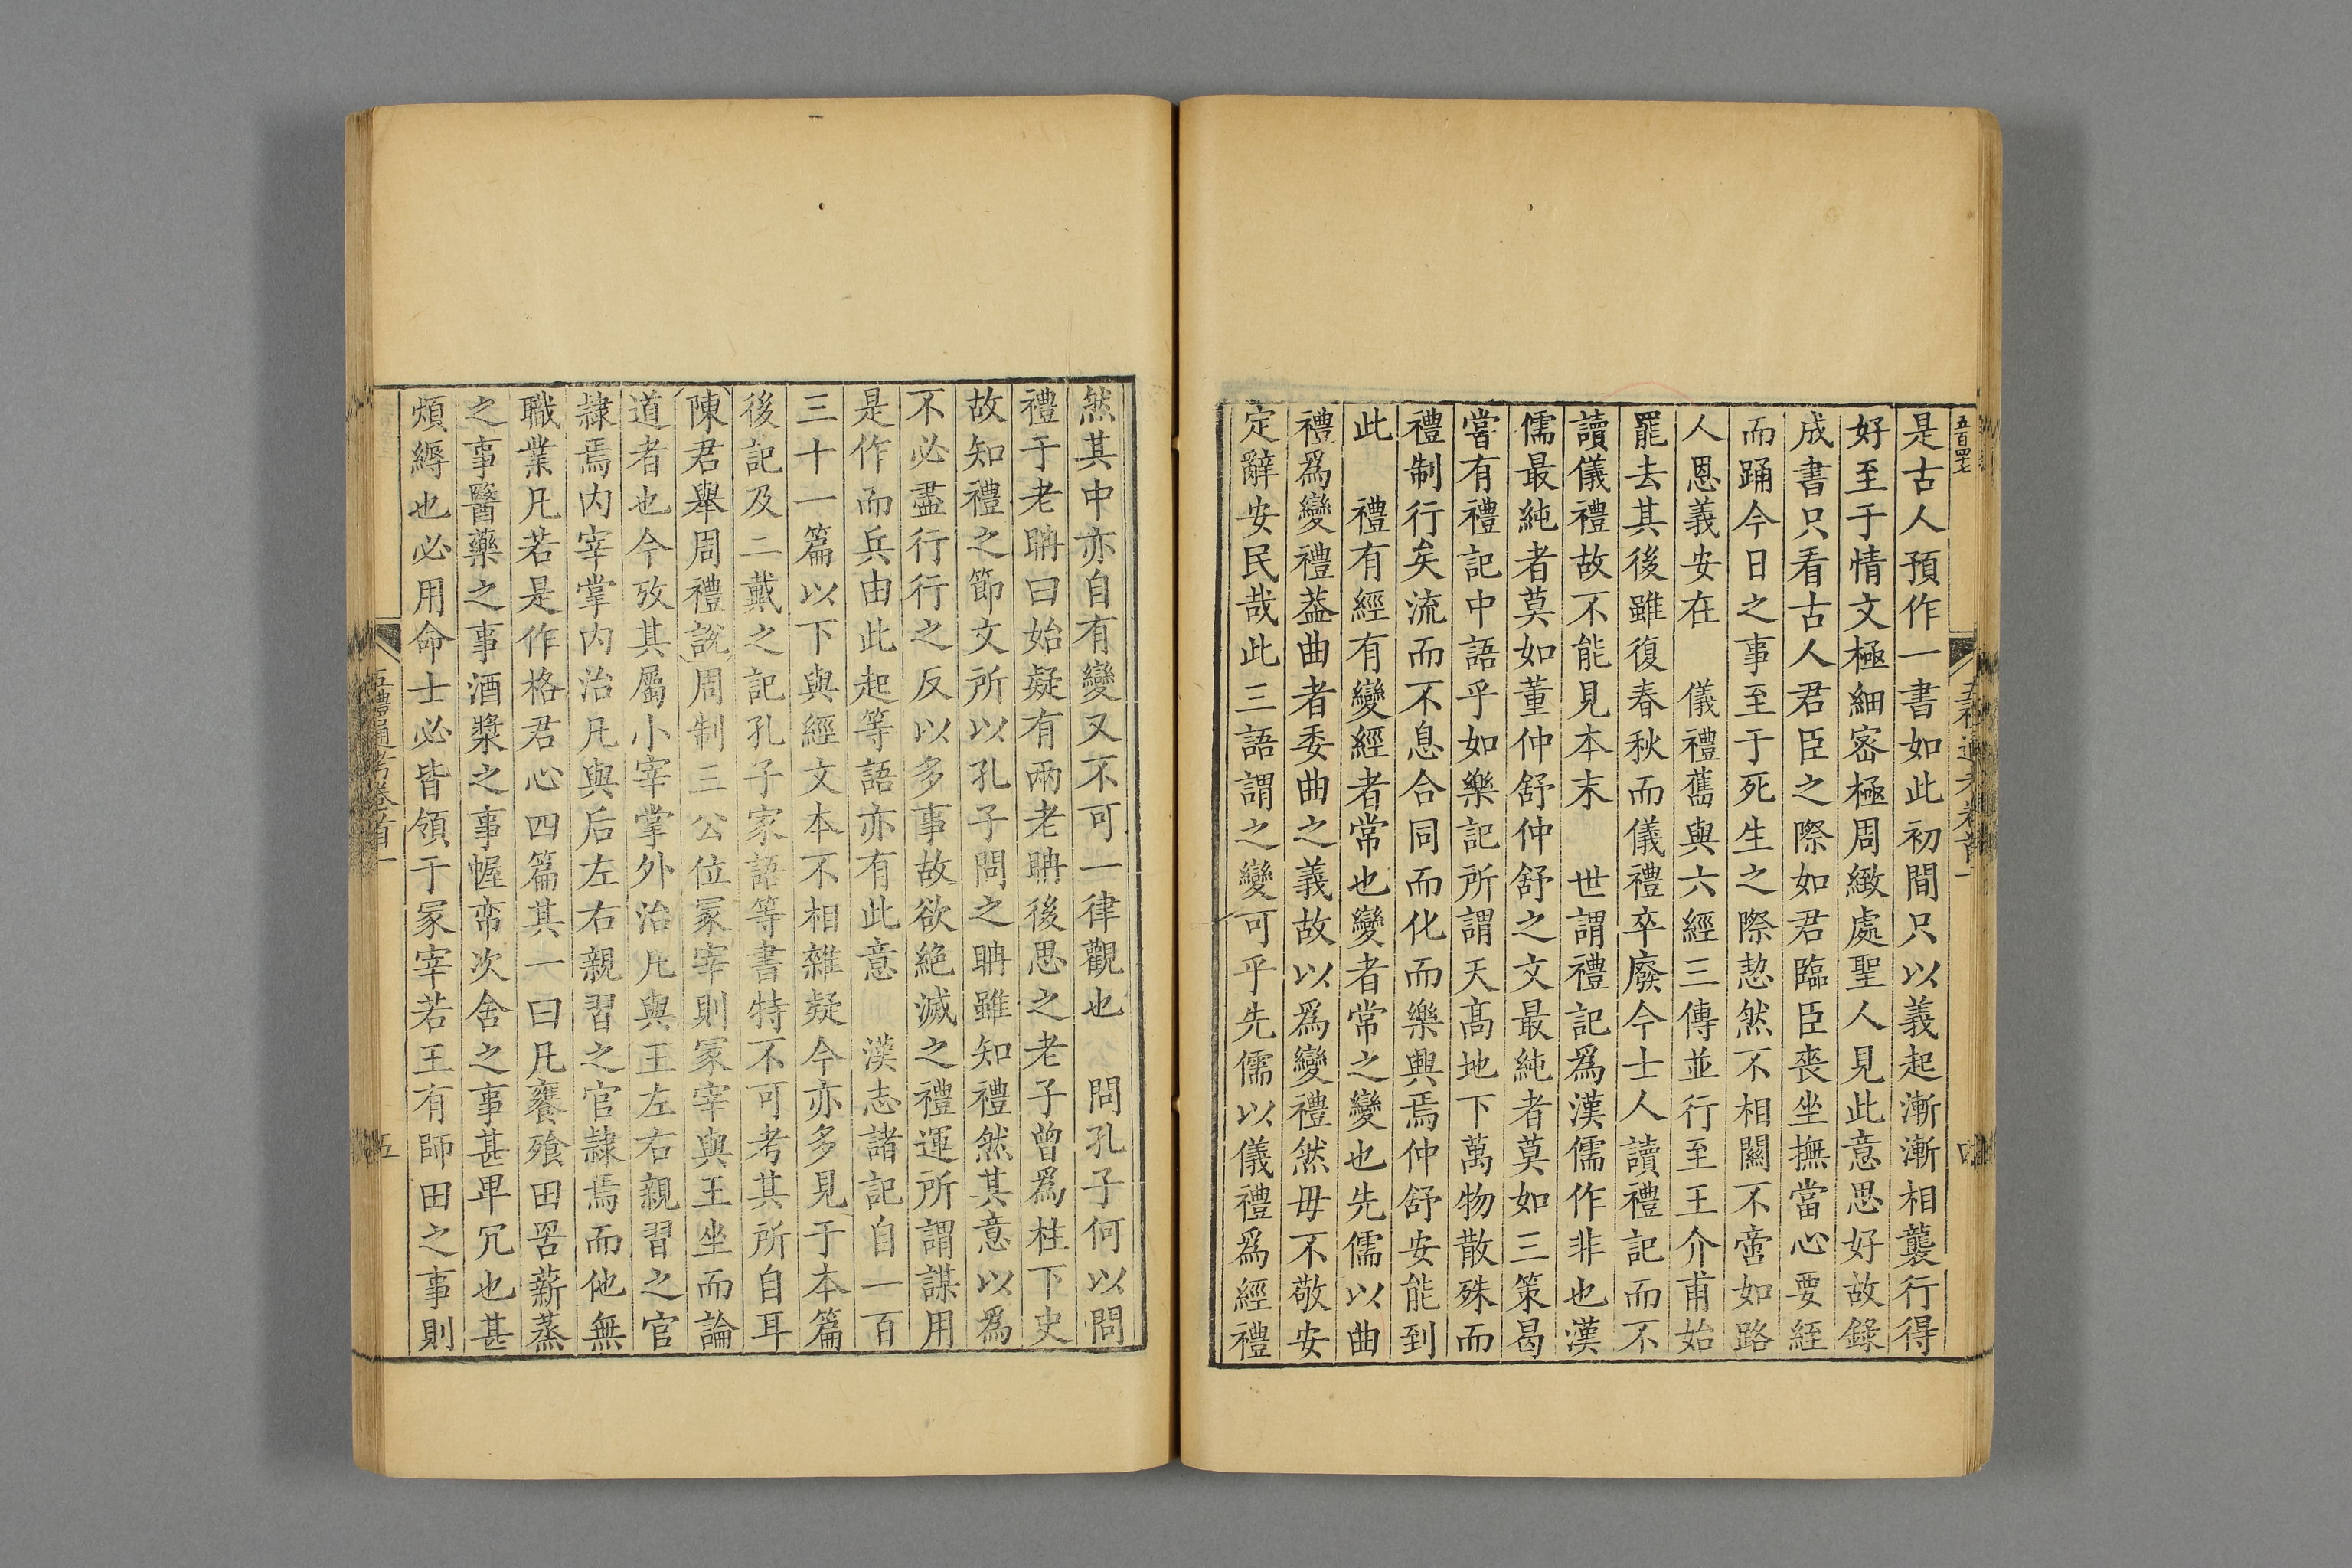 五百四七
是古人預作一書如此初間只以義起漸漸相襲行得
好至于情文極細密極周緻處聖人見此意思好故錄
成書只看古人君臣之際如君臨臣喪坐撫當心要絰
而踊今日之事至于死生之際恝然不相關不啻如路
人恩義安在　儀禮舊與六經三傳並行至王介甫始
罷去其後雖復春秋而儀禮卒廢今士人讀禮記而不
讀儀禮故不能見本末　世謂禮記爲漢儒作非也漢
儒最純者莫如董仲舒仲舒之文最純者莫如三策曷
嘗有禮記中語乎如樂記所謂天高地下萬物散殊而
禮制行矣流而不息合同而化而樂興焉仲舒安能到
此　禮有經有變經者常也變者常之變也先儒以曲
禮爲變禮葢曲者委曲之義故以爲變禮然毋不敬安
定辭安民哉此三語謂之變可乎先儒以儀禮爲經禮
然其中亦自有變又不可一律觀也　問孔子何以問
禮于老聃曰始疑有兩老聃後思之老子曾爲柱下史
故知禮之節文所以孔子問之聃雖知禮然其意以爲
不必盡行行之反以多事故欲絶滅之禮運所謂謀用
是作而兵由此起等語亦有此意　漢志諸記自一百
三十一篇以下與經文本不相雜疑今亦多見于本篇
後記及二戴之記孔子家語等書特不可考其所自耳
陳君舉周禮說周制三公位冢宰則冢宰與王坐而論
道者也今攷其屬小宰掌外治凡與王左右親習之官
隷焉内宰掌内治凡與后左右親習之官隷焉而他無
職業凡若是作格君心四篇其一曰凡饔飱田罟薪蒸
之事醫藥之事酒漿之事幄帟次舍之事甚畢冗也甚
煩縟也必用命士必皆領于冢宰若王有師田之事則
五禮通考卷首一
五